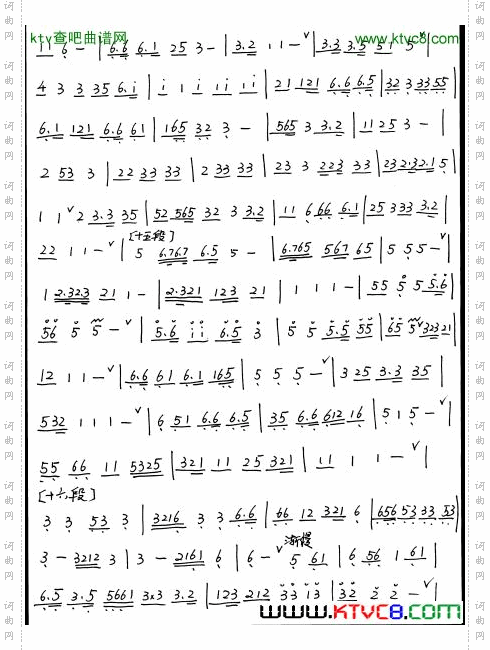 ktv查吧曲谱网 www.ktvc8.com
11 6 - | 6.6 6.1 25 3 - | 3.2 1 1 - ∨ | 3.3 3.5 51 5 ∨ |
4 3 3 35 6.i | i i i ii i i | 21 121 6.6 6.5 | 32 3 33 55 |
6.1 121 6.6 61 | 165 32 3 - | 565 3 3.2 | 11 25 3 - |
2 53 3 | 22 33 33 | 2 33 33 | 23 3 223 33 | 23 2.32.1 5 |
1 1 ∨ 2 3.3 35 | 52 565 32 3 3.2 | 11 6 66 6.1 | 25 3 33 3.2 |
[十五段]
22 1 1 - ∨ | 5 6.76.7 6.5 5 - | 6.765 567 65 | 5 5 5 - ∨ |
1 2.32.3 21 1 - | 2.321 123 21 | 1 1 1 - | 55 5 5 5.6 |
56 5 5 - ∨ | 5.6 ii 6.5 3 | 5 5 5.5 55 | 65 5 ∨ 323 21 |
12 1 1 - ∨ | 6.6 61 6.1 165 | 5 5 5 - ∨ | 3 25 3.3 35 |
532 1 1 1 - ∨ | 6 51 6.6 6.5 | 35 6.6 612 16 | 5 1 5 - ∨ |
55 66 11 5325 | 321 11 25 321 | 11 1 1 - ∨ |
[十六段]
3 3 53 3 | 3216 3 3 6.6 | 66 12 321 6 | 656 53 33 53 |
渐慢
3 - 3212 3 | 3 - 2161 6 | 6 - ∨ 5 61 | 6 56 1 61 |
6.5 3.5 5661 3x3 3.2 | 123 212 33 13 | 32 2 2 - ∨ |
www.KTVC8.com
词曲网